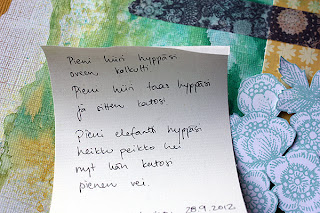 Pieni hiiri hyppäsi
oveen, kolkutti
Pieni hiiri taas hyppäsi
ja sitten katosi
Pieni elefantti hyppäsi
heikku peikko hei
nyt hän katosi
pienen vei.
28.9.2012